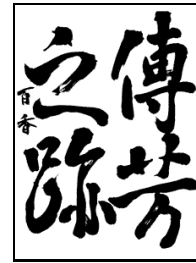 傳芳
之跡
百香